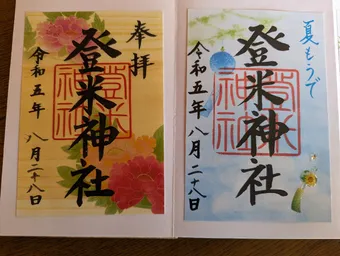 奉拝
登米神社
令和五年 八月二十八日
夏もうで
登米神社
令和五年 八月二十八日